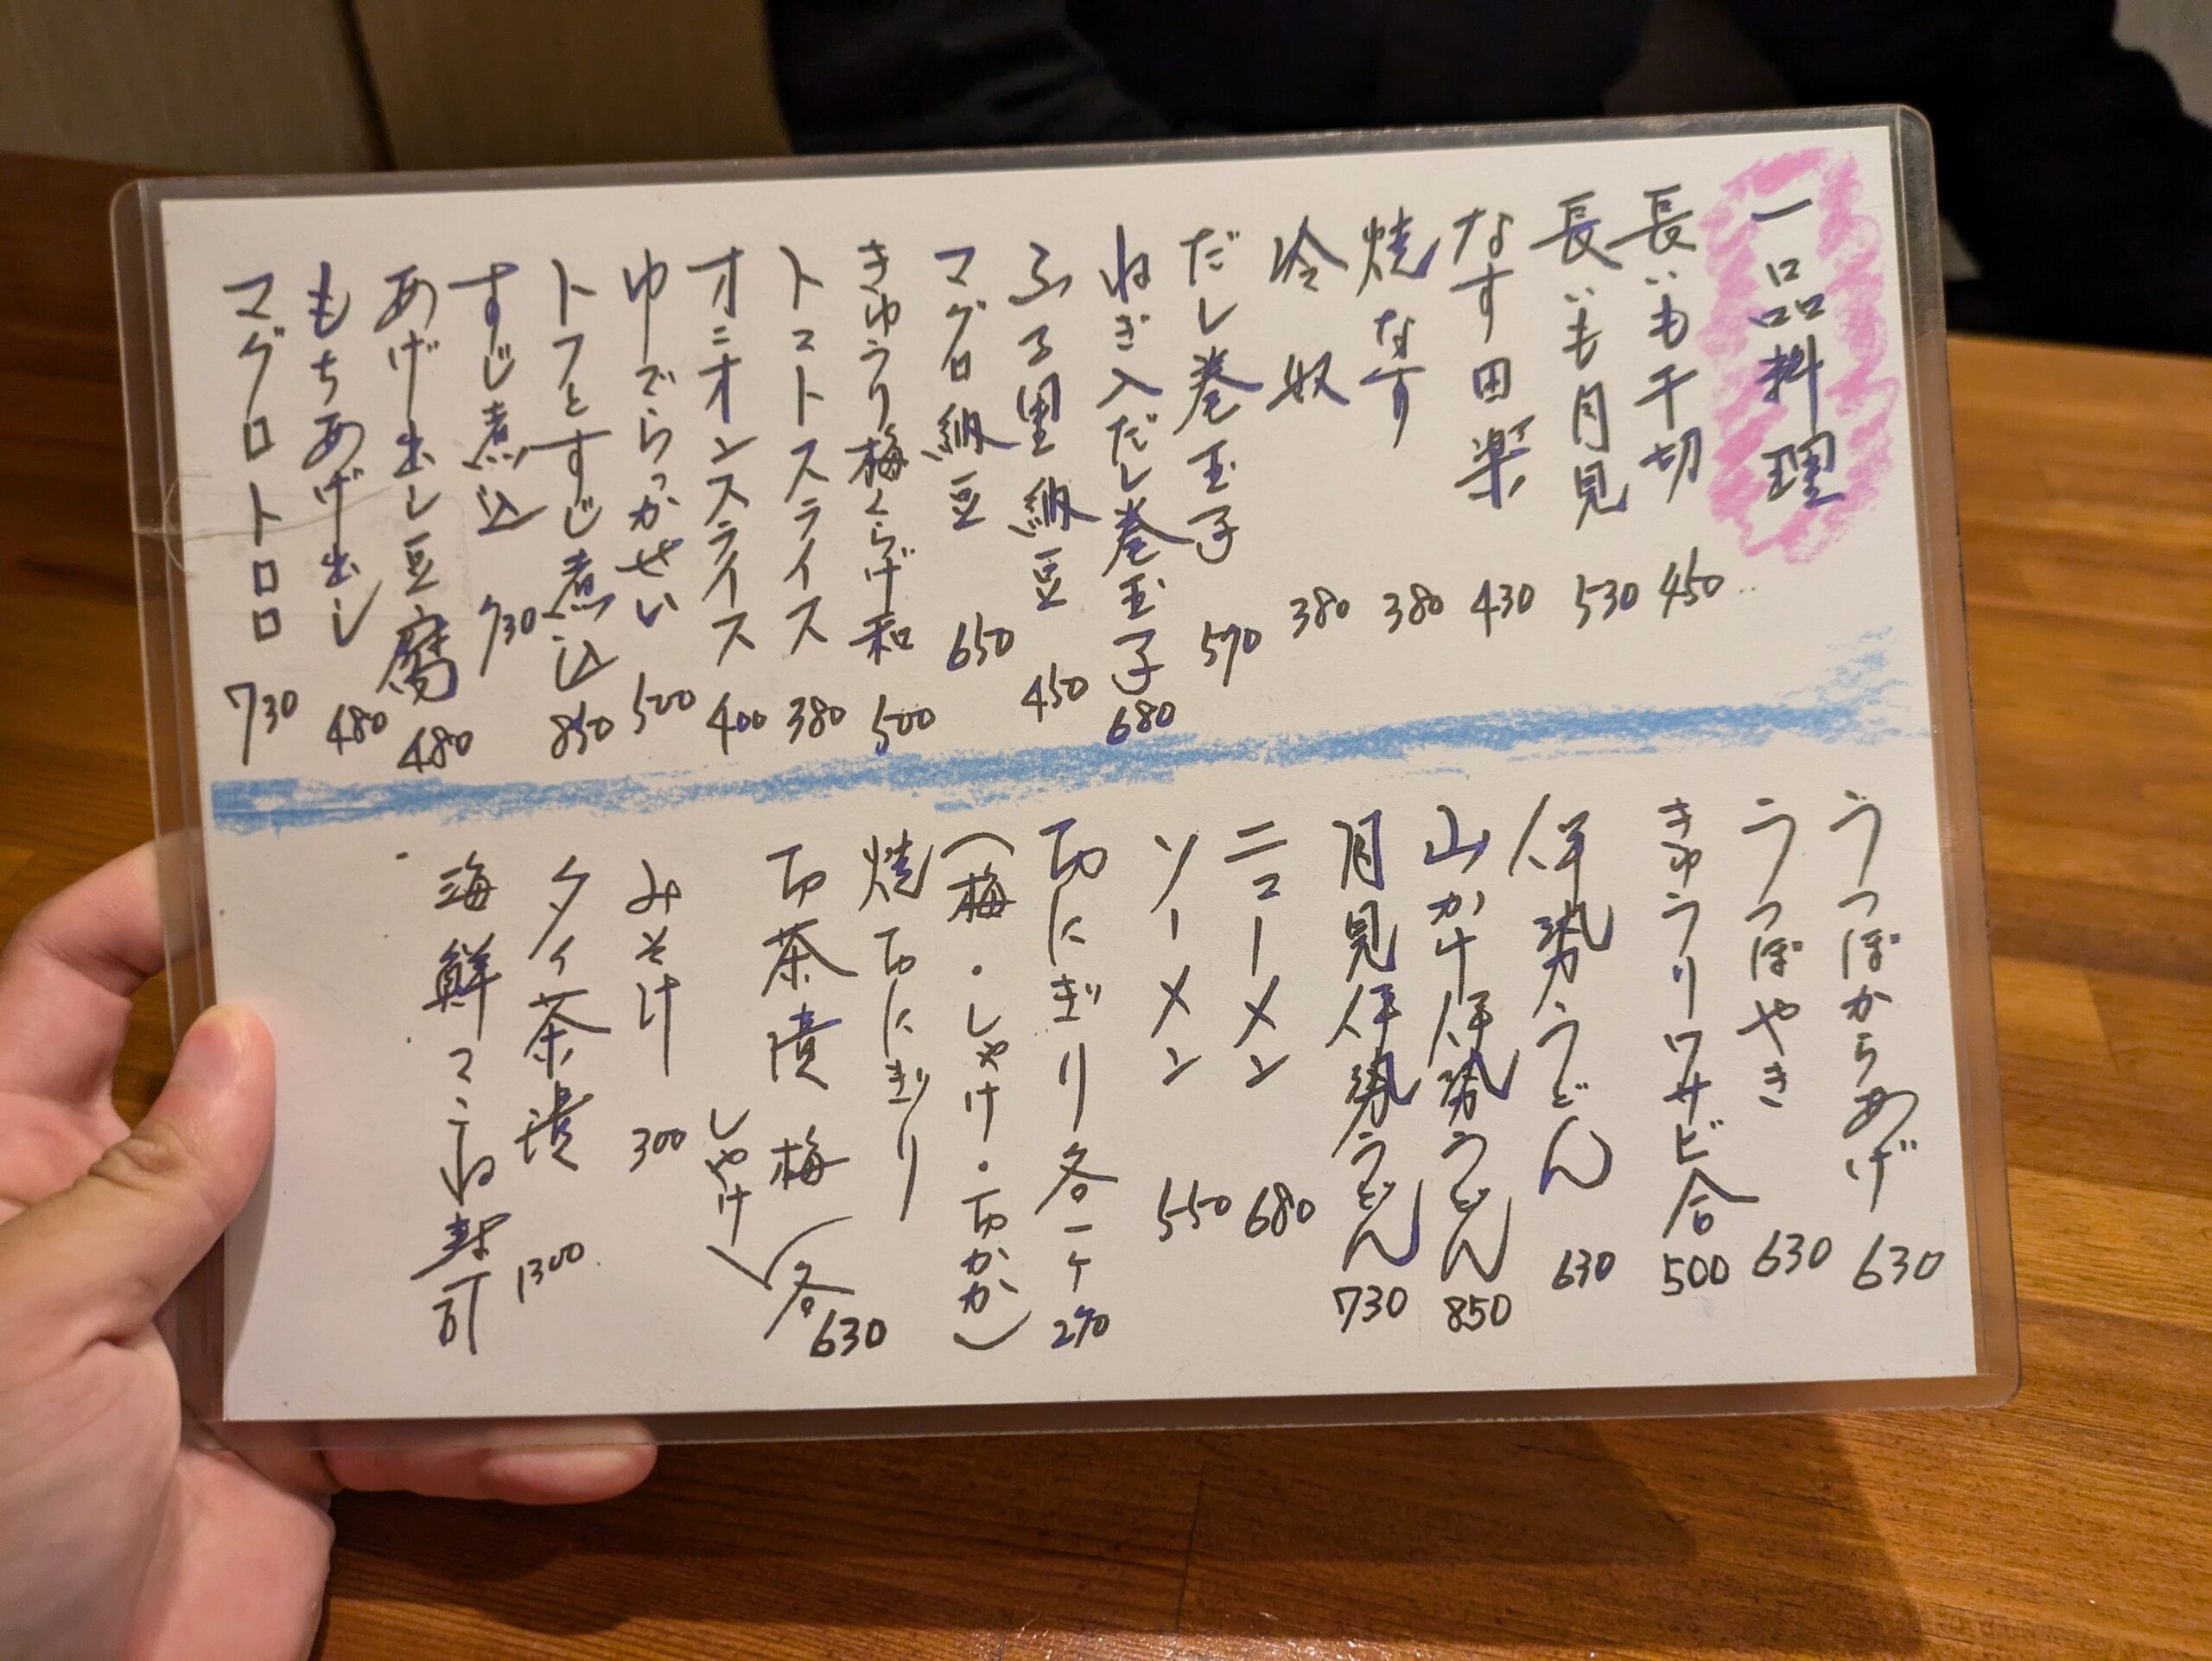 一品料理
長いも千切 450
長いも月見 530
なす田楽 430
焼なす 380
冷奴 380
だし巻玉子 570
ねぎ入だし巻玉子 680
ふる里納豆 450
マグロ納豆 650
きゅうり梅くらげ和 500
トマトスライス 380
オニオンスライス 400
ゆでらっかせい 500
トフとすじ煮込 850
すじ煮込 730
あげ出し豆腐 480
もちあげ出し 480
マグロトロロ 730
うつぼからあげ 630
うつぼやき 630
きゅうりワサビ合 500
伊勢うどん 630
山かけ伊勢うどん 850
月見伊勢うどん 730
ニューメン 680
ソーメン 550
おにぎり各一ケ 270
(梅・しゃけ・おかか)
焼おにぎり
お茶漬 梅 しゃけ 各630
みそ汁 300
タイ茶漬 1300
海鮮まかね寿司